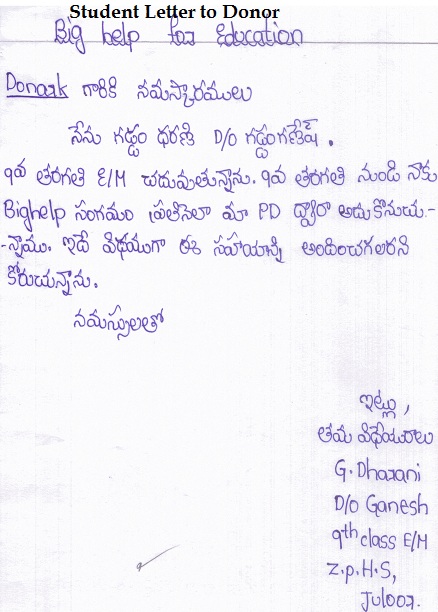 Student Letter to Donor
Big help for Education
Donark గారికి నమస్కారములు
నేను గడ్డం ధరణి D/O గడ్డంగణేష్.
9వ తరగతి E/M చదువుతున్నాను. 9వ తరగతి నుండి నాకు
Bighelp సంగమం ప్రతినెలా మా PD ద్వారా అదుకొనుచు-
-న్నాము. ఇదే విధముగా ఈ సహాయాన్ని అందించగలరని
కోరుచున్నాను.
నమస్సులతో
ఇట్లు,
తమ విధేయురాలు
G. Dharani
D/O Ganesh
9th class E/M
Z.P.H.S,